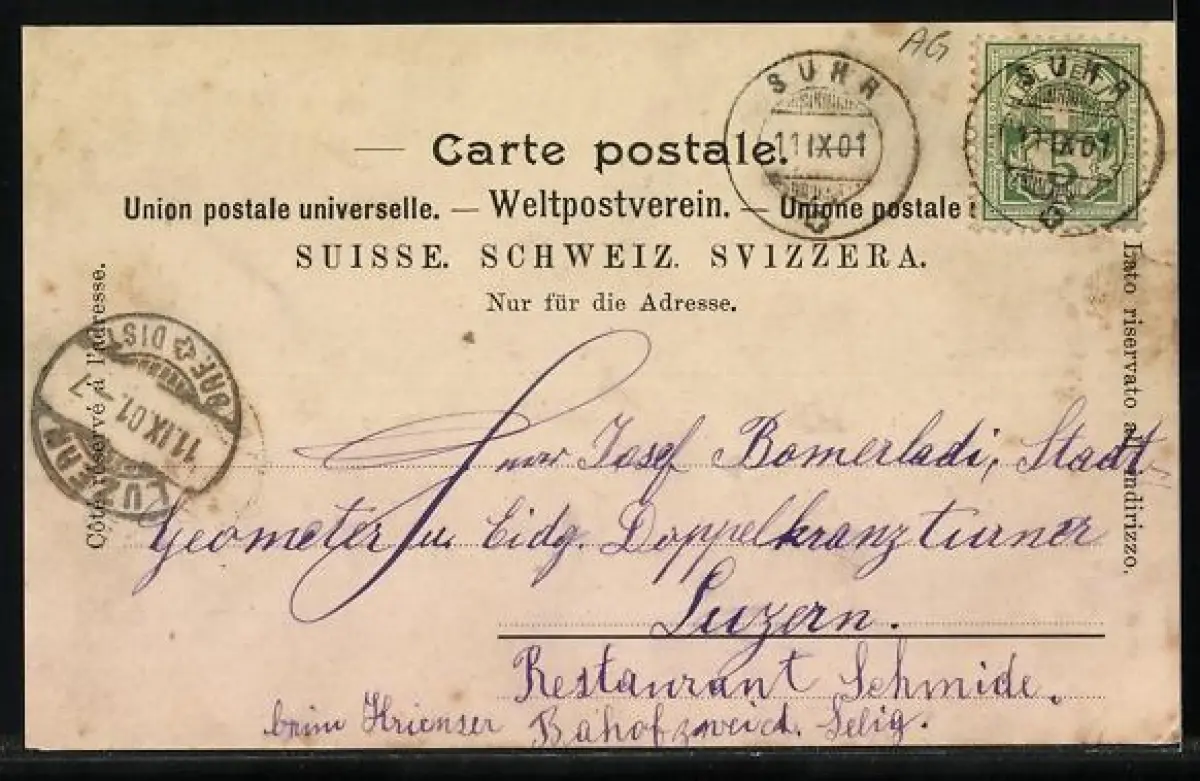 AG
SUHR
11 IX 01
SUHR
11 IX 01
5
Carte postale.
Union postale universelle. — Weltpostverein. — Unione postale
SUISSE. SCHWEIZ. SVIZZERA.
Nur für die Adresse.
Côté réservé à l'adresse.
Lato riservato all'indirizzo.
LUZERN
11.IX.01.-7
BRF. DIST.
Herr Josef Bomerladi, Stadt-
Geometer u. Eidg. Doppelkranzturner
Luzern.
Restaurant Schmide.
beim Krienser Bahofzweich. Selig.